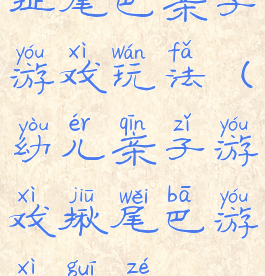 揪尾巴亲子
yóu xì wán fǎ
游戏玩法（
yòu ér qīn zǐ yóu
幼儿亲子游
xì jiū wěi bā yóu
戏揪尾巴游
xì guī zé